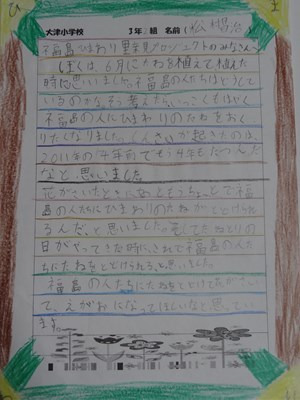 大津小学校 3年 組 名前
福島ひまわり里親プロジェクトのみなさんへ
ぼくは、6月にたねを植えて植えた
時に思いました。福島の人たちはどうして
いるのかな。そう考えたら、いっこくもはやく
福島の人にひまわりのたねをおく
りたくなりました。しんさいが起きたのは、
2011年の4年前でもう4年もたつんだ
なと思いました
花がさいたときになともうちょっとで福
島の人たちにひまわりのたねがとどけられ
るんだ。と思いました。そしてたねとりの
日がやってきた時にこれで福島の人た
ちにたねをとどけられる。と思いました。
福島の人たちにたねをとどけて花がさい
て、えがおになってほしいなと思ってい
ます。